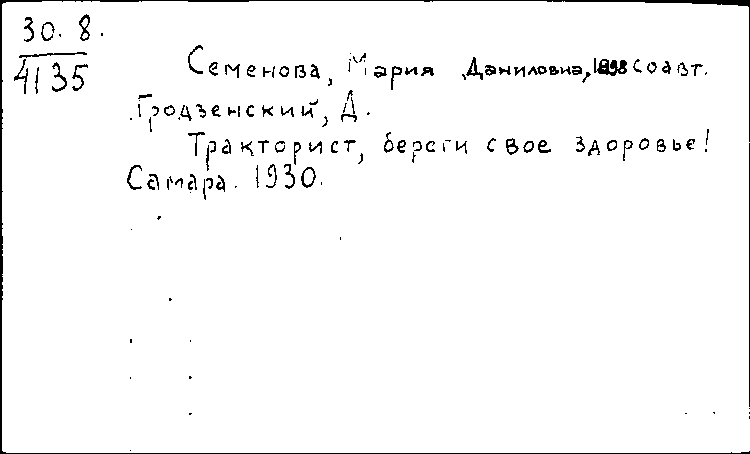 30. 8.
4135
Семенова, Мария Даниловна, 1898 соавт.
Гродзенский, Д.
Тракторист, береги свое здоровье!
Самара. 1930.